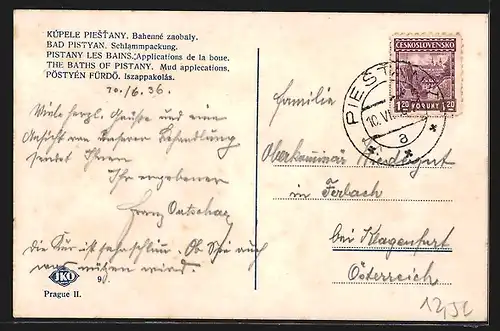 KÚPELE PIEŠŤANY. Bahenné zaobaly.
BAD PISTYAN. Schlammpackung.
PISTANY LES BAINS. Applications de la boue.
THE BATHS OF PISTANY. Mud applecations.
PÖSTYÉN FÜRDŐ. Iszappakolás.
10./6.36.
Viele herzl. Grüsse und eine
Ansicht von unserer Behandlung
sendet Ihnen
Ihr ergebener
Franz
Die Kur ist sehr schlimm. Ob Sie auch
was nützen wird.
JKO
9
Prague II.
ČESKOSLOVENSKO
1.20 KORUNY 1.20
PIEŠŤ
10. VI.
a
Familie
Oberkommissär
in Ferlach
bei Klagenfurt
Österreich